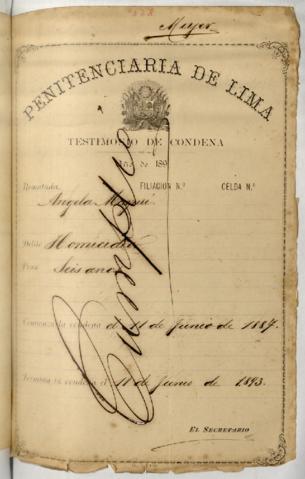 Mujer
PENITENCIARIA DE LIMA
TESTIMONIO DE CONDENA
Año de 189
Rematada, FILIACION N.º CELDA N.º
Angela
Delito Homicidio
Pena Seis años
Comienza la condena el 11 de Junio de 1887.
Termina la condena el 11 de Junio de 1893.
Cumplió
EL SECRETARIO